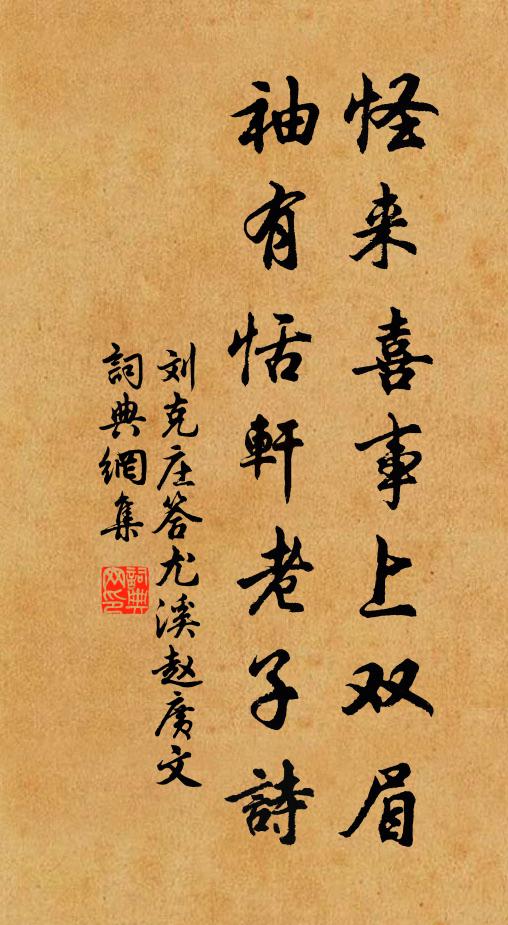 怪来喜事上双眉
袖有恬軒老子詩
刘克庄答尤溪赵廣文
詞典網集
詞典网印